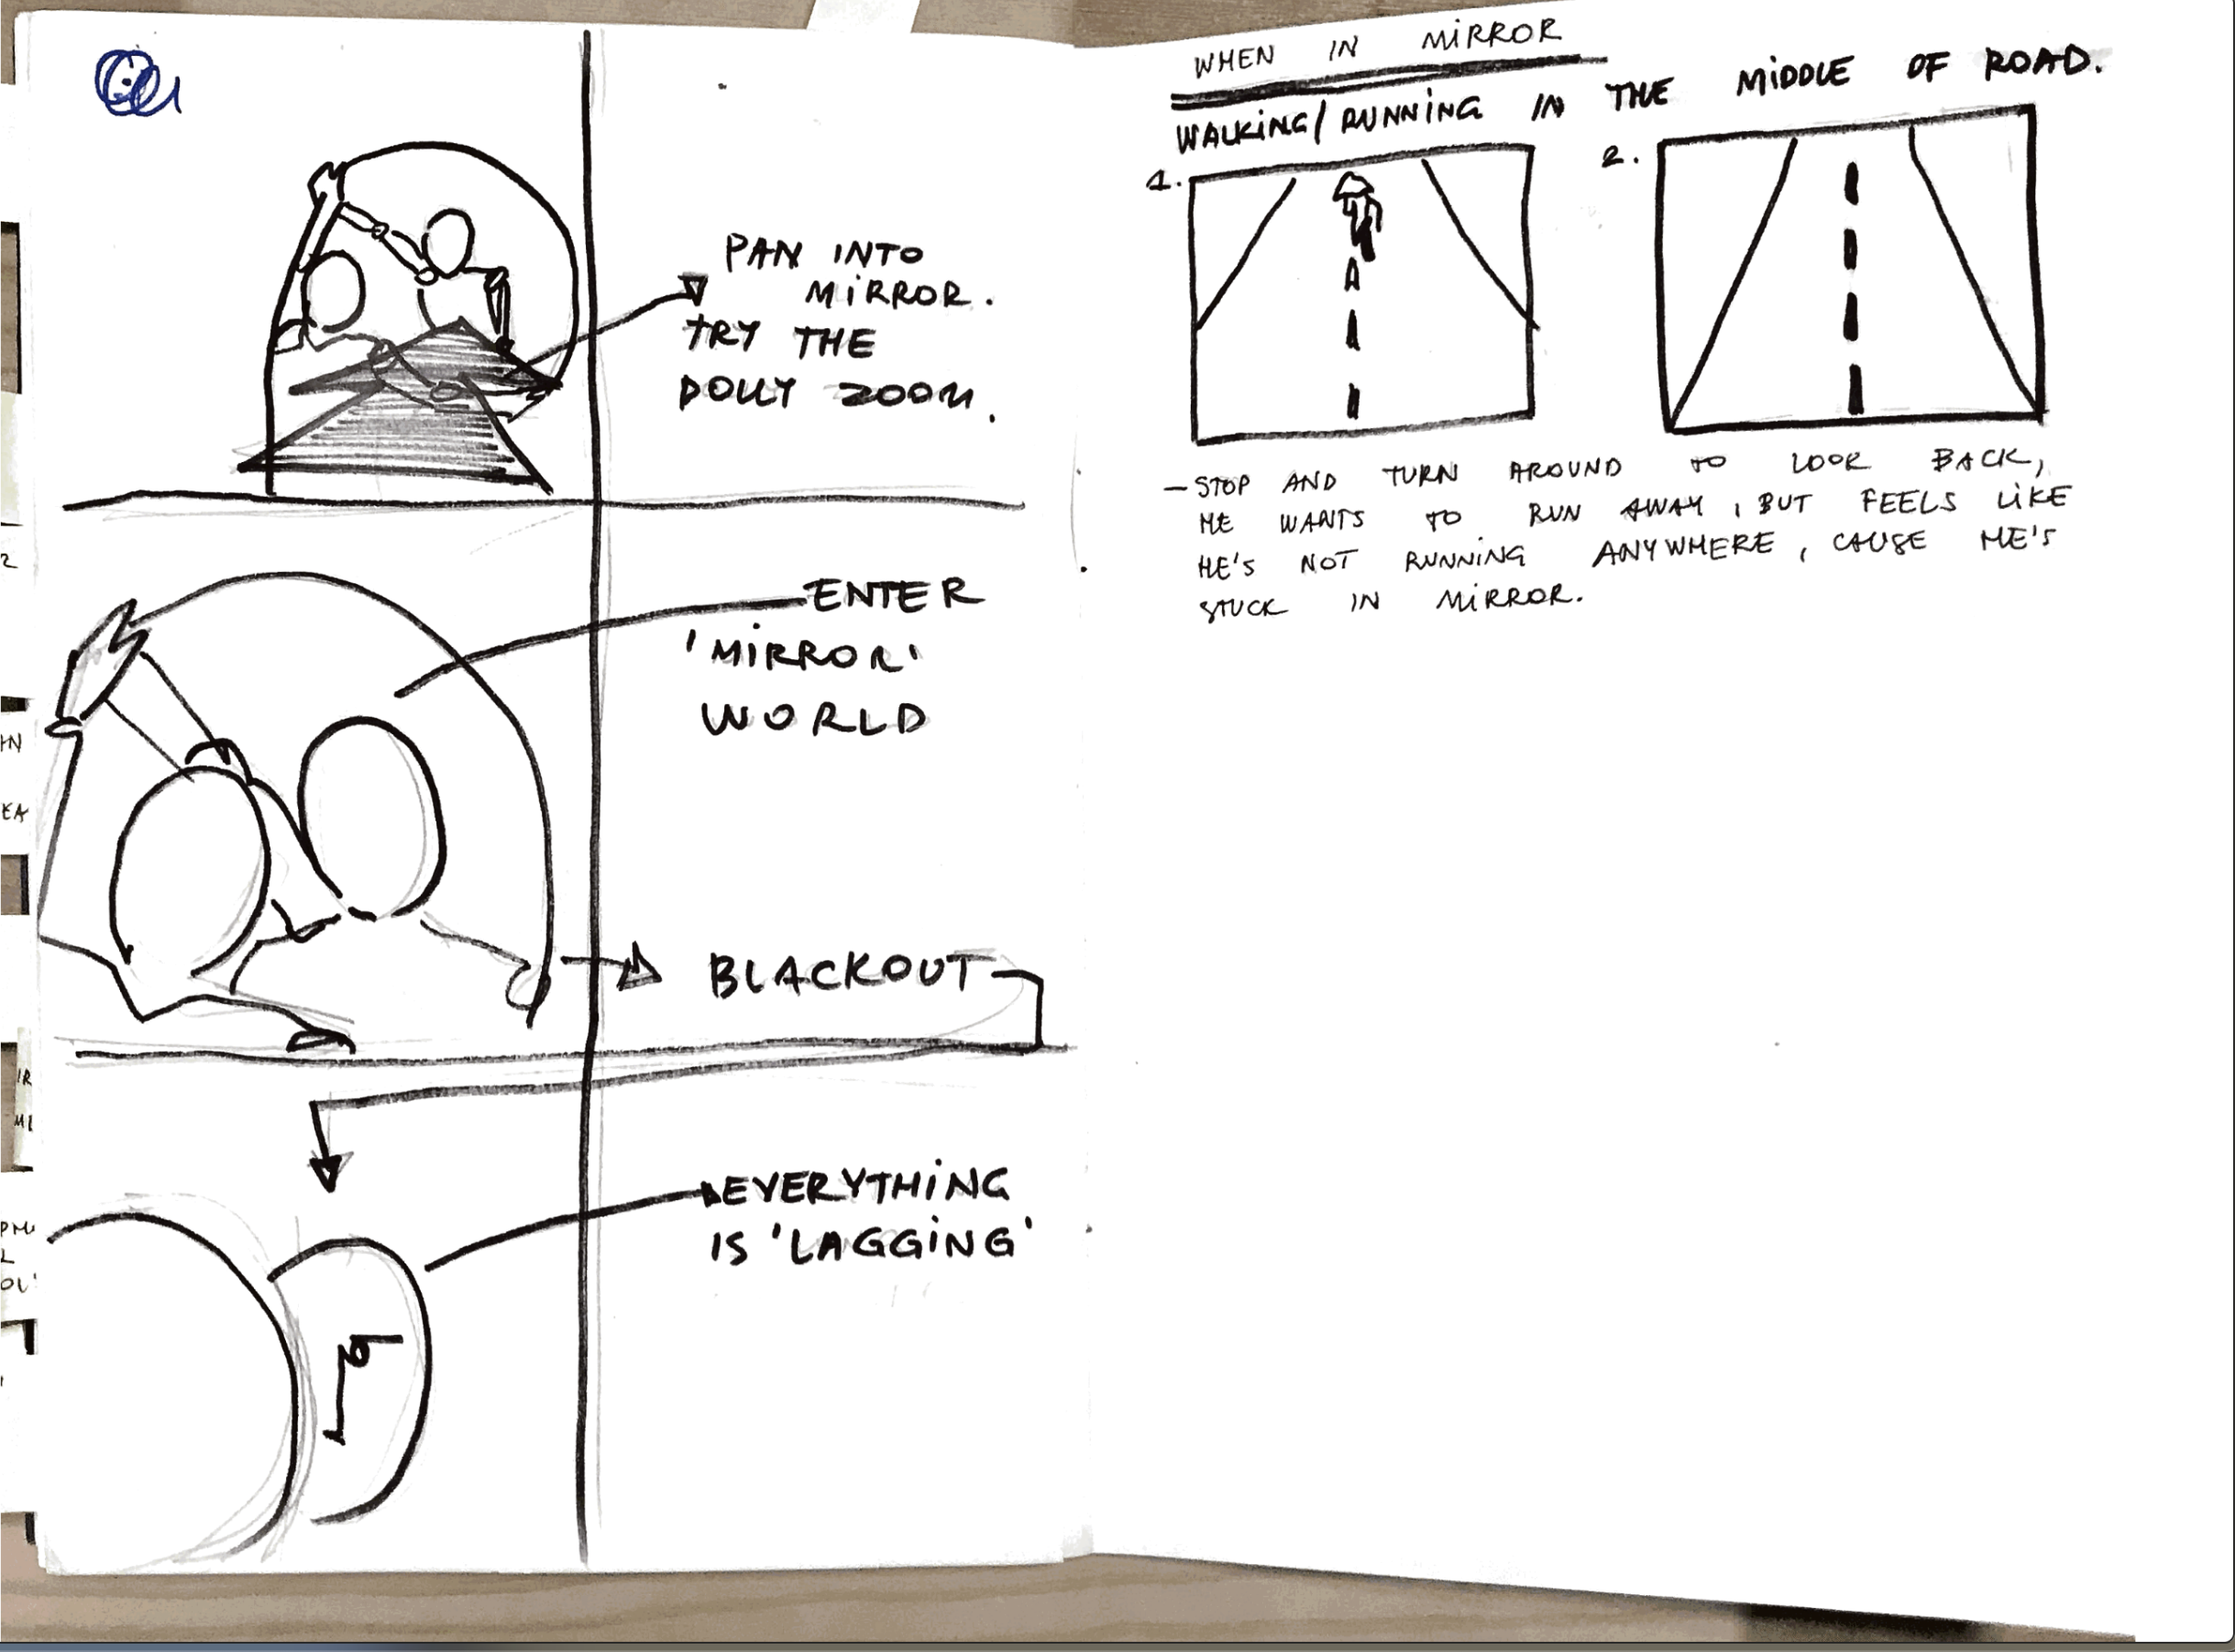 PAN INTO
MIRROR.
TRY THE
DOLLY ZOOM.
ENTER
'MIRROR'
WORLD
BLACKOUT
EVERYTHING
IS 'LAGGING'
WHEN IN MIRROR
WALKING/RUNNING IN THE MIDDLE OF ROAD.
1.
2.
- STOP AND TURN AROUND TO LOOK BACK,
HE WANTS TO RUN AWAY, BUT FEELS LIKE
HE'S NOT RUNNING ANYWHERE, CAUSE HE'S
STUCK IN MIRROR.